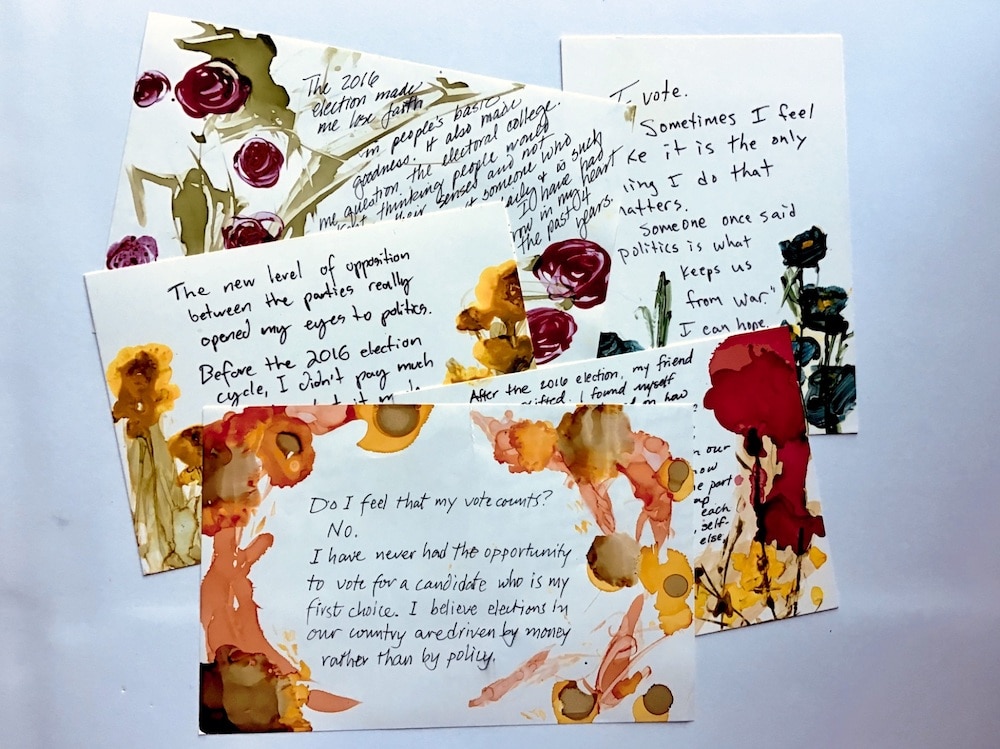 The 2016
election made
me lose faith
in people's basic
goodness. It also made
me question the electoral college.
thinking people would
their senses and not
someone who
& is such
I have had
row in my heart
the past 4
years.
I vote.
Sometimes I feel
ke it is the only
ing I do that
matters.
Someone once said
politics is what
keeps us
from war."
I can hope.
The new level of opposition
between the parties really
opened my eyes to politics.
Before the 2016 election
cycle, I didn't pay much
After the 2016 election, my friend
shifted. I found myself
on how
our
now
e part
each
self-
else,
Do I feel that my vote counts?
No.
I have never had the opportunity
to vote for a candidate who is my
first choice. I believe elections in
our country are driven by money
rather than by policy.